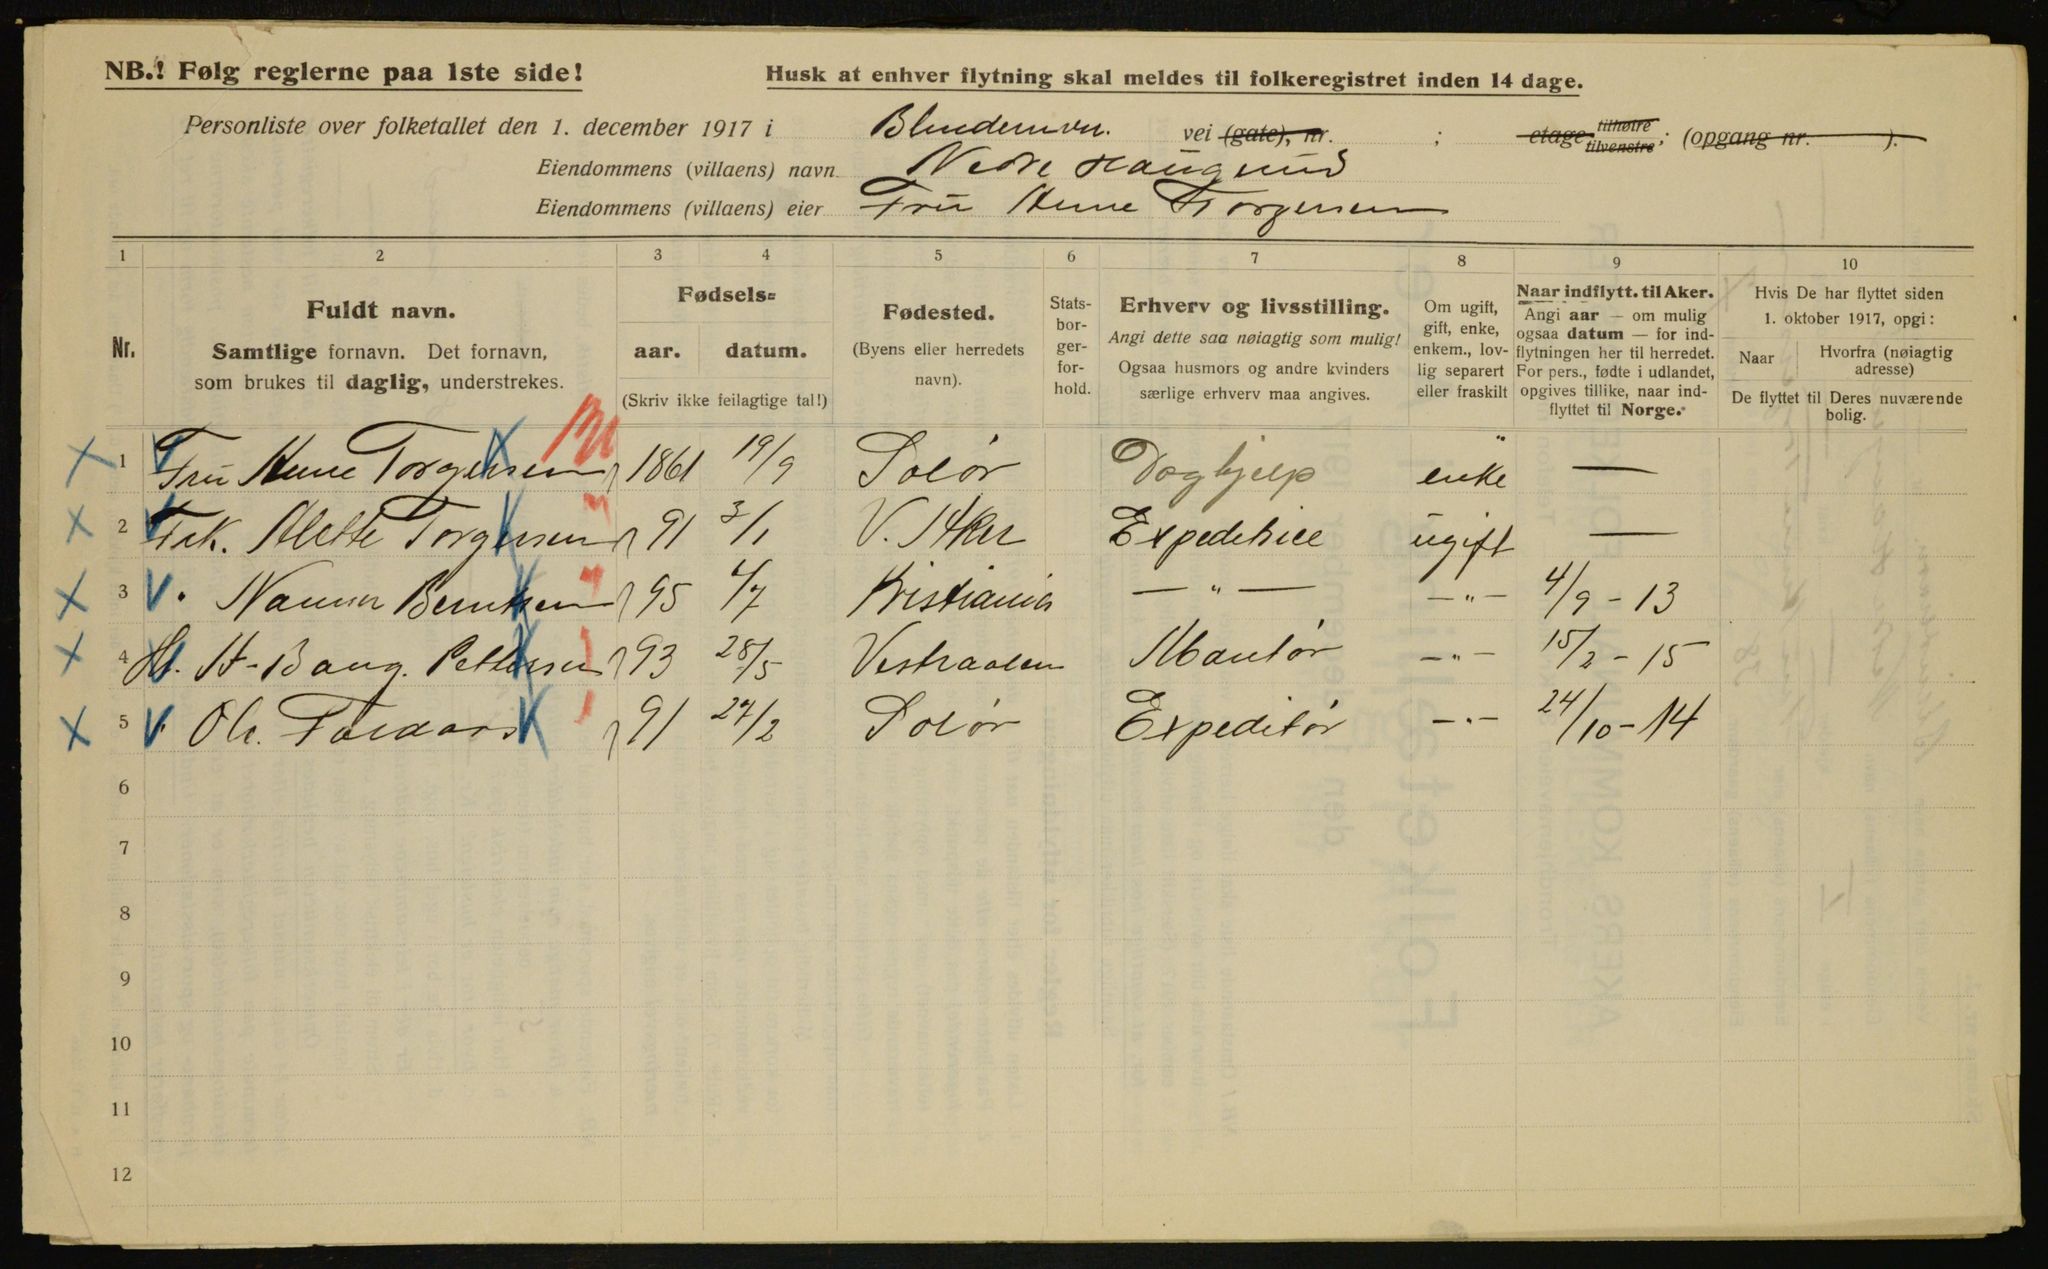 NB.! Følg reglerne paa 1ste side!
Husk at enhver flytning skal meldes til folkeregistret inden 14 dage.
Personliste over folketallet den 1. december 1917 i Blindernvn. vei (gate), nr. ; etage tilhøire tilvenstre; (opgang nr. ).
Eiendommens (villaens) navn Nedre Haugerud
Eiendommens (villaens) eier Fru Anne Torgersen
1 2 3 4 5 6 7 8 9 10
Nr.
Fuldt navn.
Samtlige fornavn. Det fornavn,
som brukes til daglig, understrekes.
Fødsels-
aar. datum.
(Skriv ikke feilagtige tal!)
Fødested.
(Byens eller herredets
navn).
Stats-
bor-
ger-
for-
hold.
Erhverv og livsstilling.
Angi dette saa nøiagtig som mulig!
Ogsaa husmors og andre kvinders
særlige erhverv maa angives.
Om ugift,
gift, enke,
enkem., lov-
lig separert
eller fraskilt
Naar indflytt. til Aker.
Angi aar — om mulig
ogsaa datum — for ind-
flytningen her til herredet.
For pers., fødte i udlandet,
opgives tillike, naar ind-
flyttet til Norge.
Hvis De har flyttet siden
1. oktober 1917, opgi:
Naar
Hvorfra (nøiagtig
adresse)
De flyttet til Deres nuværende
bolig.
1 Fru Anne Torgersen 1861 19/9 Solør Doghjelp enke —
2 Frk. Alette Torgersen 91 3/1 V. Aker Expeditrice ugift —
3 " Nanna Berntsen 95 4/7 Kristiania — " — — " — 4/9 - 13
4 Hr. A. Bang. Pettersen 93 28/5 Vestraalen Mantør — " — 15/2 - 15
5 " Ole 91 27/2 Solør Expeditør — " — 24/10 - 14
6
7
8
9
10
11
12